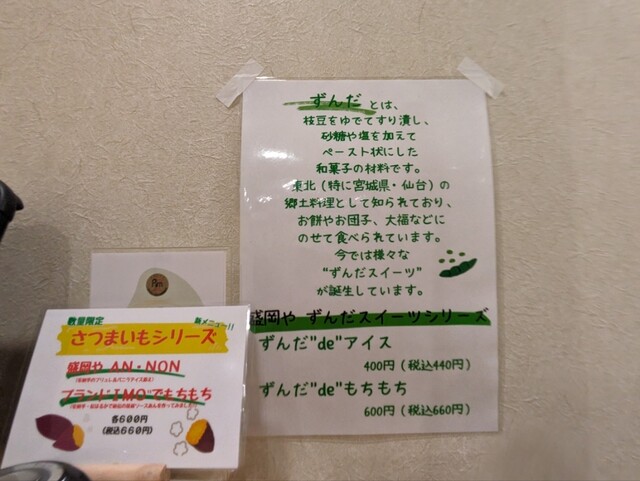 ずんだ とは、
枝豆をゆでてすり潰し、
砂糖や塩を加えて
ペースト状にした
和菓子の材料です。
東北（特に宮城県・仙台）の
郷土料理として知られており、
お餅やお団子、大福などに
のせて食べられています。
今では様々な
"ずんだスイーツ"
が誕生しています。
盛岡や ずんだスイーツシリーズ
ずんだ"de"アイス
400円（税込440円）
ずんだ"de"もちもち
600円（税込660円）
数量限定
新メニュー!!
さつまいもシリーズ
盛岡や AN・NON
ブランドIMO"でもちもち
各600円
（税込660円）